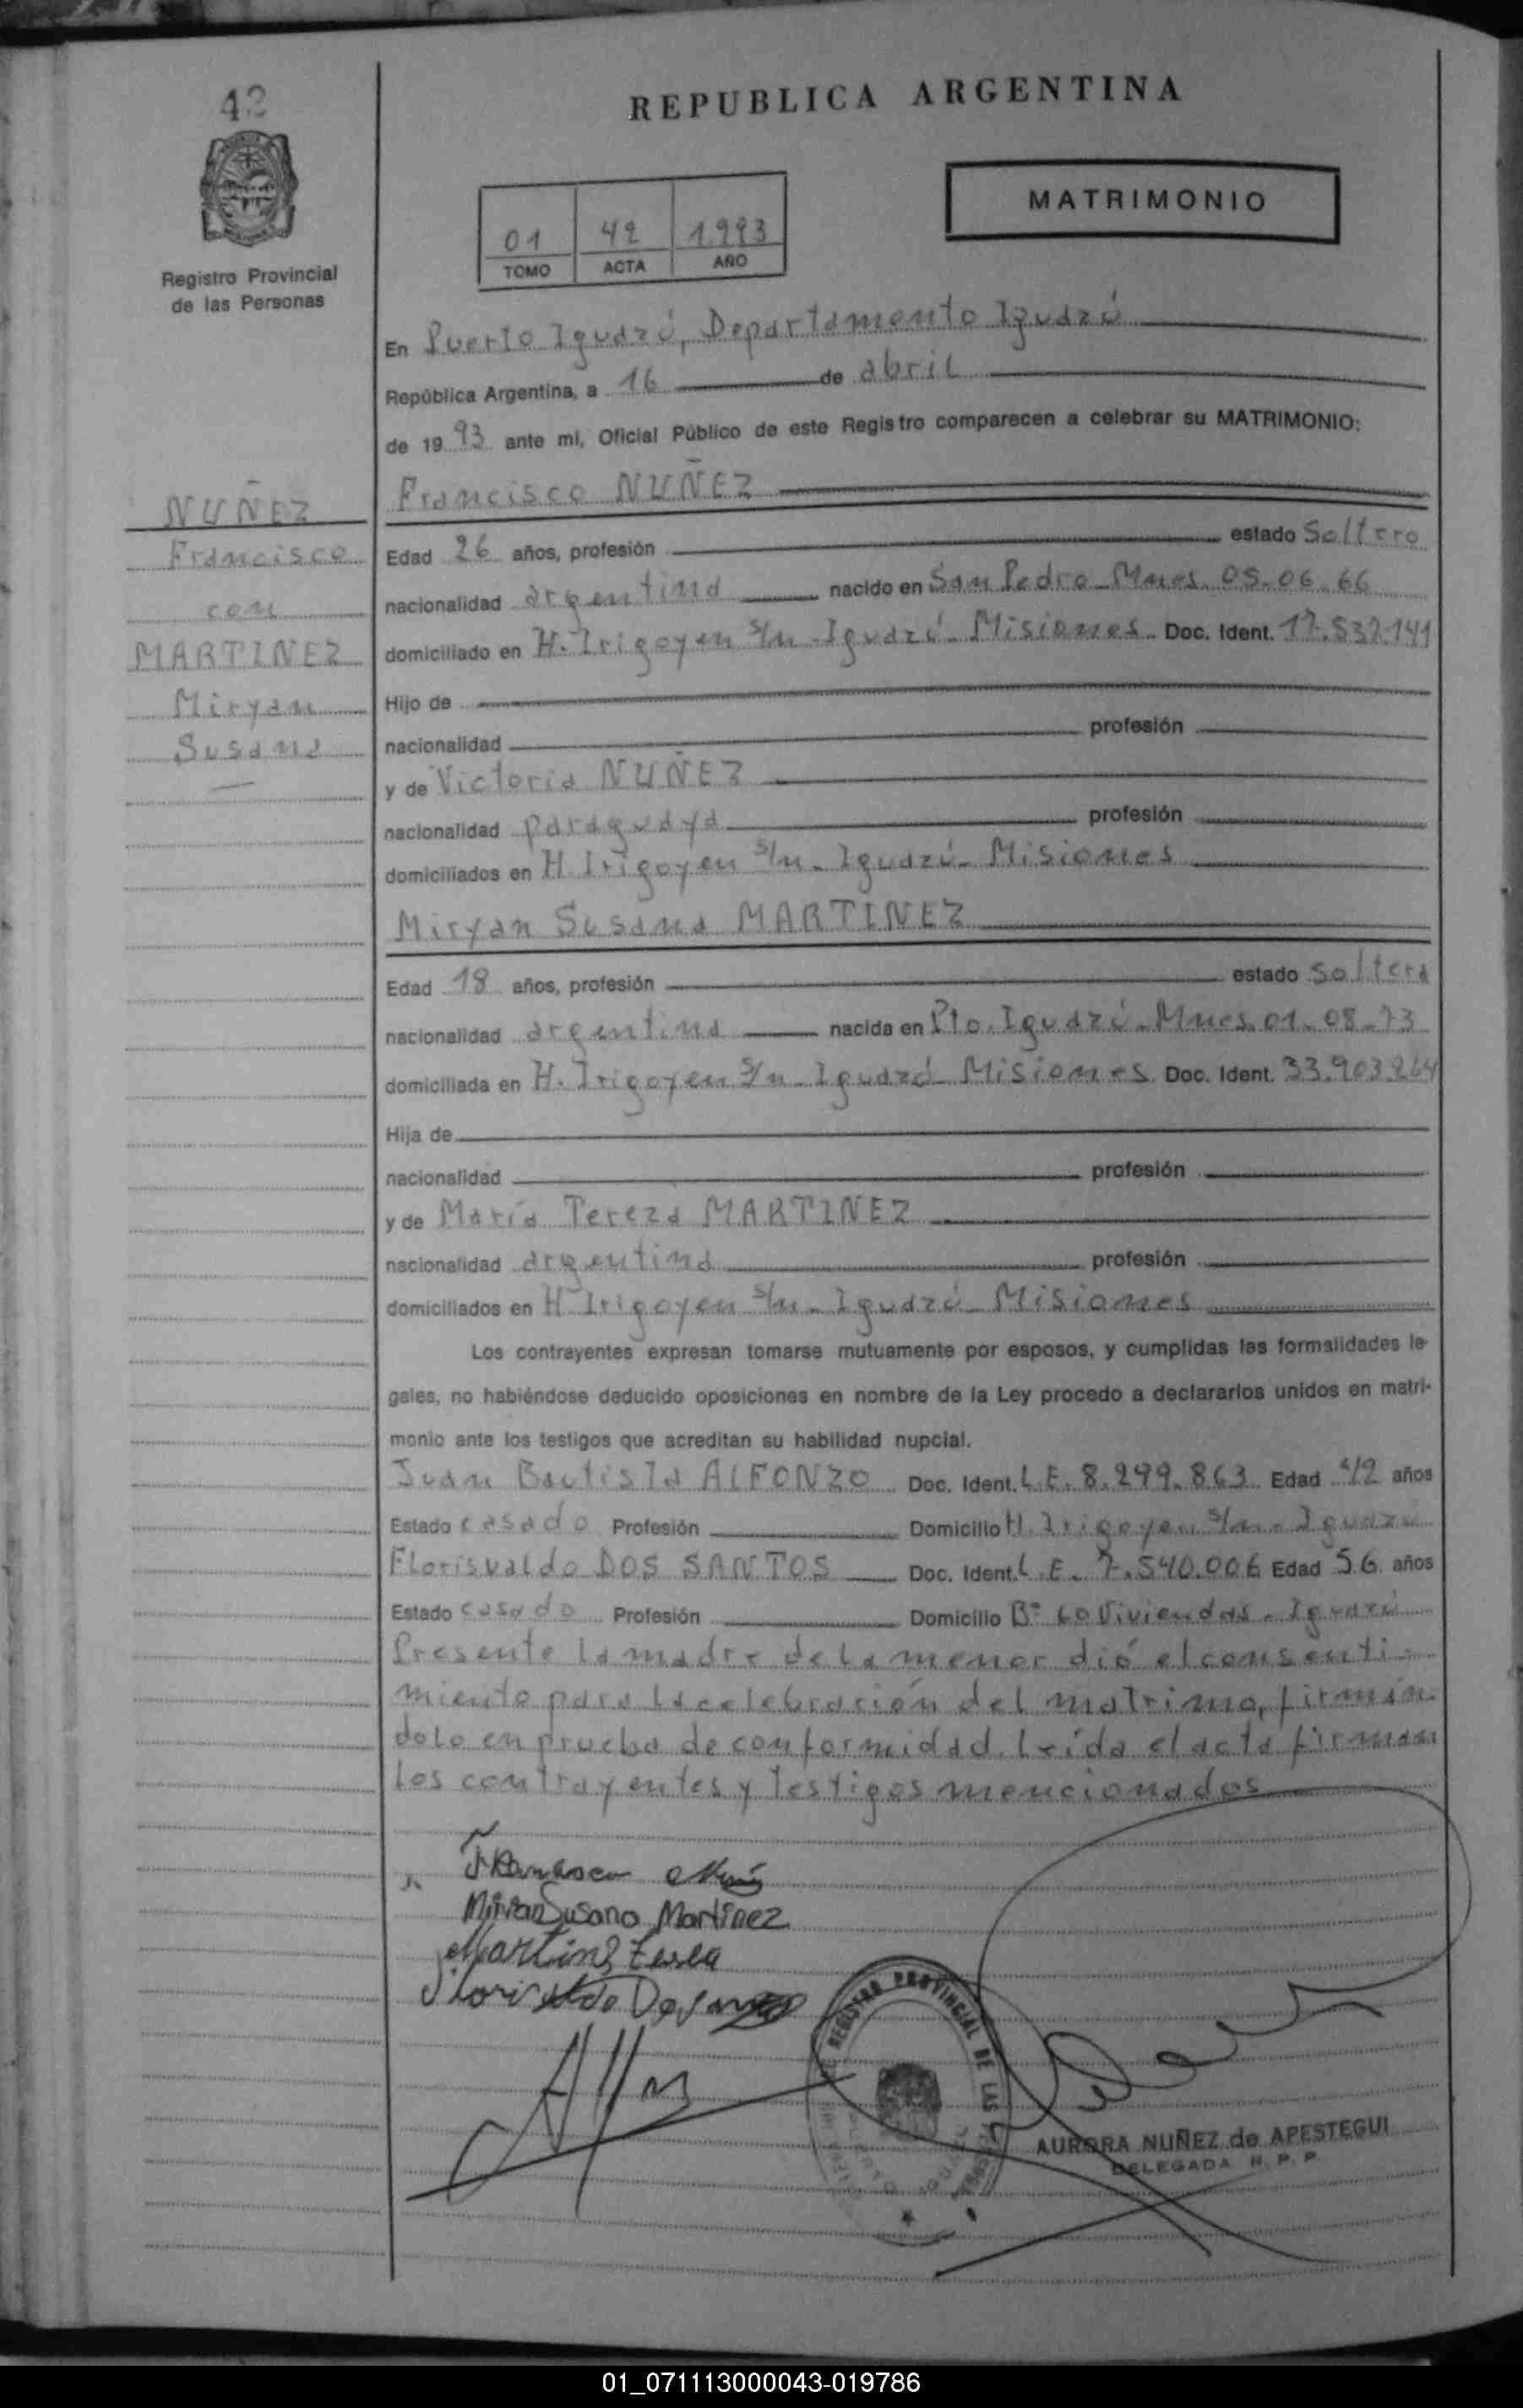 42
REPUBLICA ARGENTINA
MATRIMONIO
01 42 1.993
TOMO ACTA AÑO
Registro Provincial
de las Personas
En Puerto Iguazú, Departamento Iguazú
República Argentina, a 16 de abril
de 1993 ante mi, Oficial Público de este Registro comparecen a celebrar su MATRIMONIO:
NUÑEZ
Francisco
con
MARTINEZ
Miryan
Susana
Francisco NUÑEZ
Edad 26 años, profesión estado Soltero
nacionalidad argentina nacido en San Pedro-Mnes. 05-06-66
domiciliado en H. Irigoyen s/n-Iguazú-Misiones Doc. Ident. 17.537.141
Hijo de
nacionalidad profesión
y de Victoria NUÑEZ
nacionalidad paraguaya profesión
domiciliados en H. Irigoyen s/n-Iguazú-Misiones
Miryan Susana MARTINEZ
Edad 18 años, profesión estado soltera
nacionalidad argentina nacida en Pto. Iguazú-Mnes. 01-08-73
domiciliada en H. Irigoyen s/n-Iguazú Misiones Doc. Ident. 33.903.264
Hija de
nacionalidad profesión
y de María Tereza MARTINEZ
nacionalidad argentina profesión
domiciliados en H Irigoyen s/n-Iguazú-Misiones
Los contrayentes expresan tomarse mutuamente por esposos, y cumplidas las formalidades le-
gales, no habiéndose deducido oposiciones en nombre de la Ley procedo a declararlos unidos en matri-
monio ante los testigos que acreditan su habilidad nupcial.
Juan Bautista ALFONZO Doc. Ident. L.E. 8.299.863 Edad 42 años
Estado casado Profesión Domicilio H. Irigoyen s/n-Iguazú
Florisvaldo DOS SANTOS Doc. Ident. L.E. 7.540.006 Edad 56 años
Estado casado Profesión Domicilio Bº 60 Viviendas-Iguazú
Presente la madre de la menor dió el consenti-
miento para la celebración del matrimo, firmán-
dolo en prueba de conformidad. Leída el acta firman
los contrayentes y testigos mencionados
Mirian Susana Martinez
REGISTRO PROVINCIAL DE LAS
AURORA NUÑEZ de APESTEGUI
DELEGADA R. P. P.
01_071113000043-019786